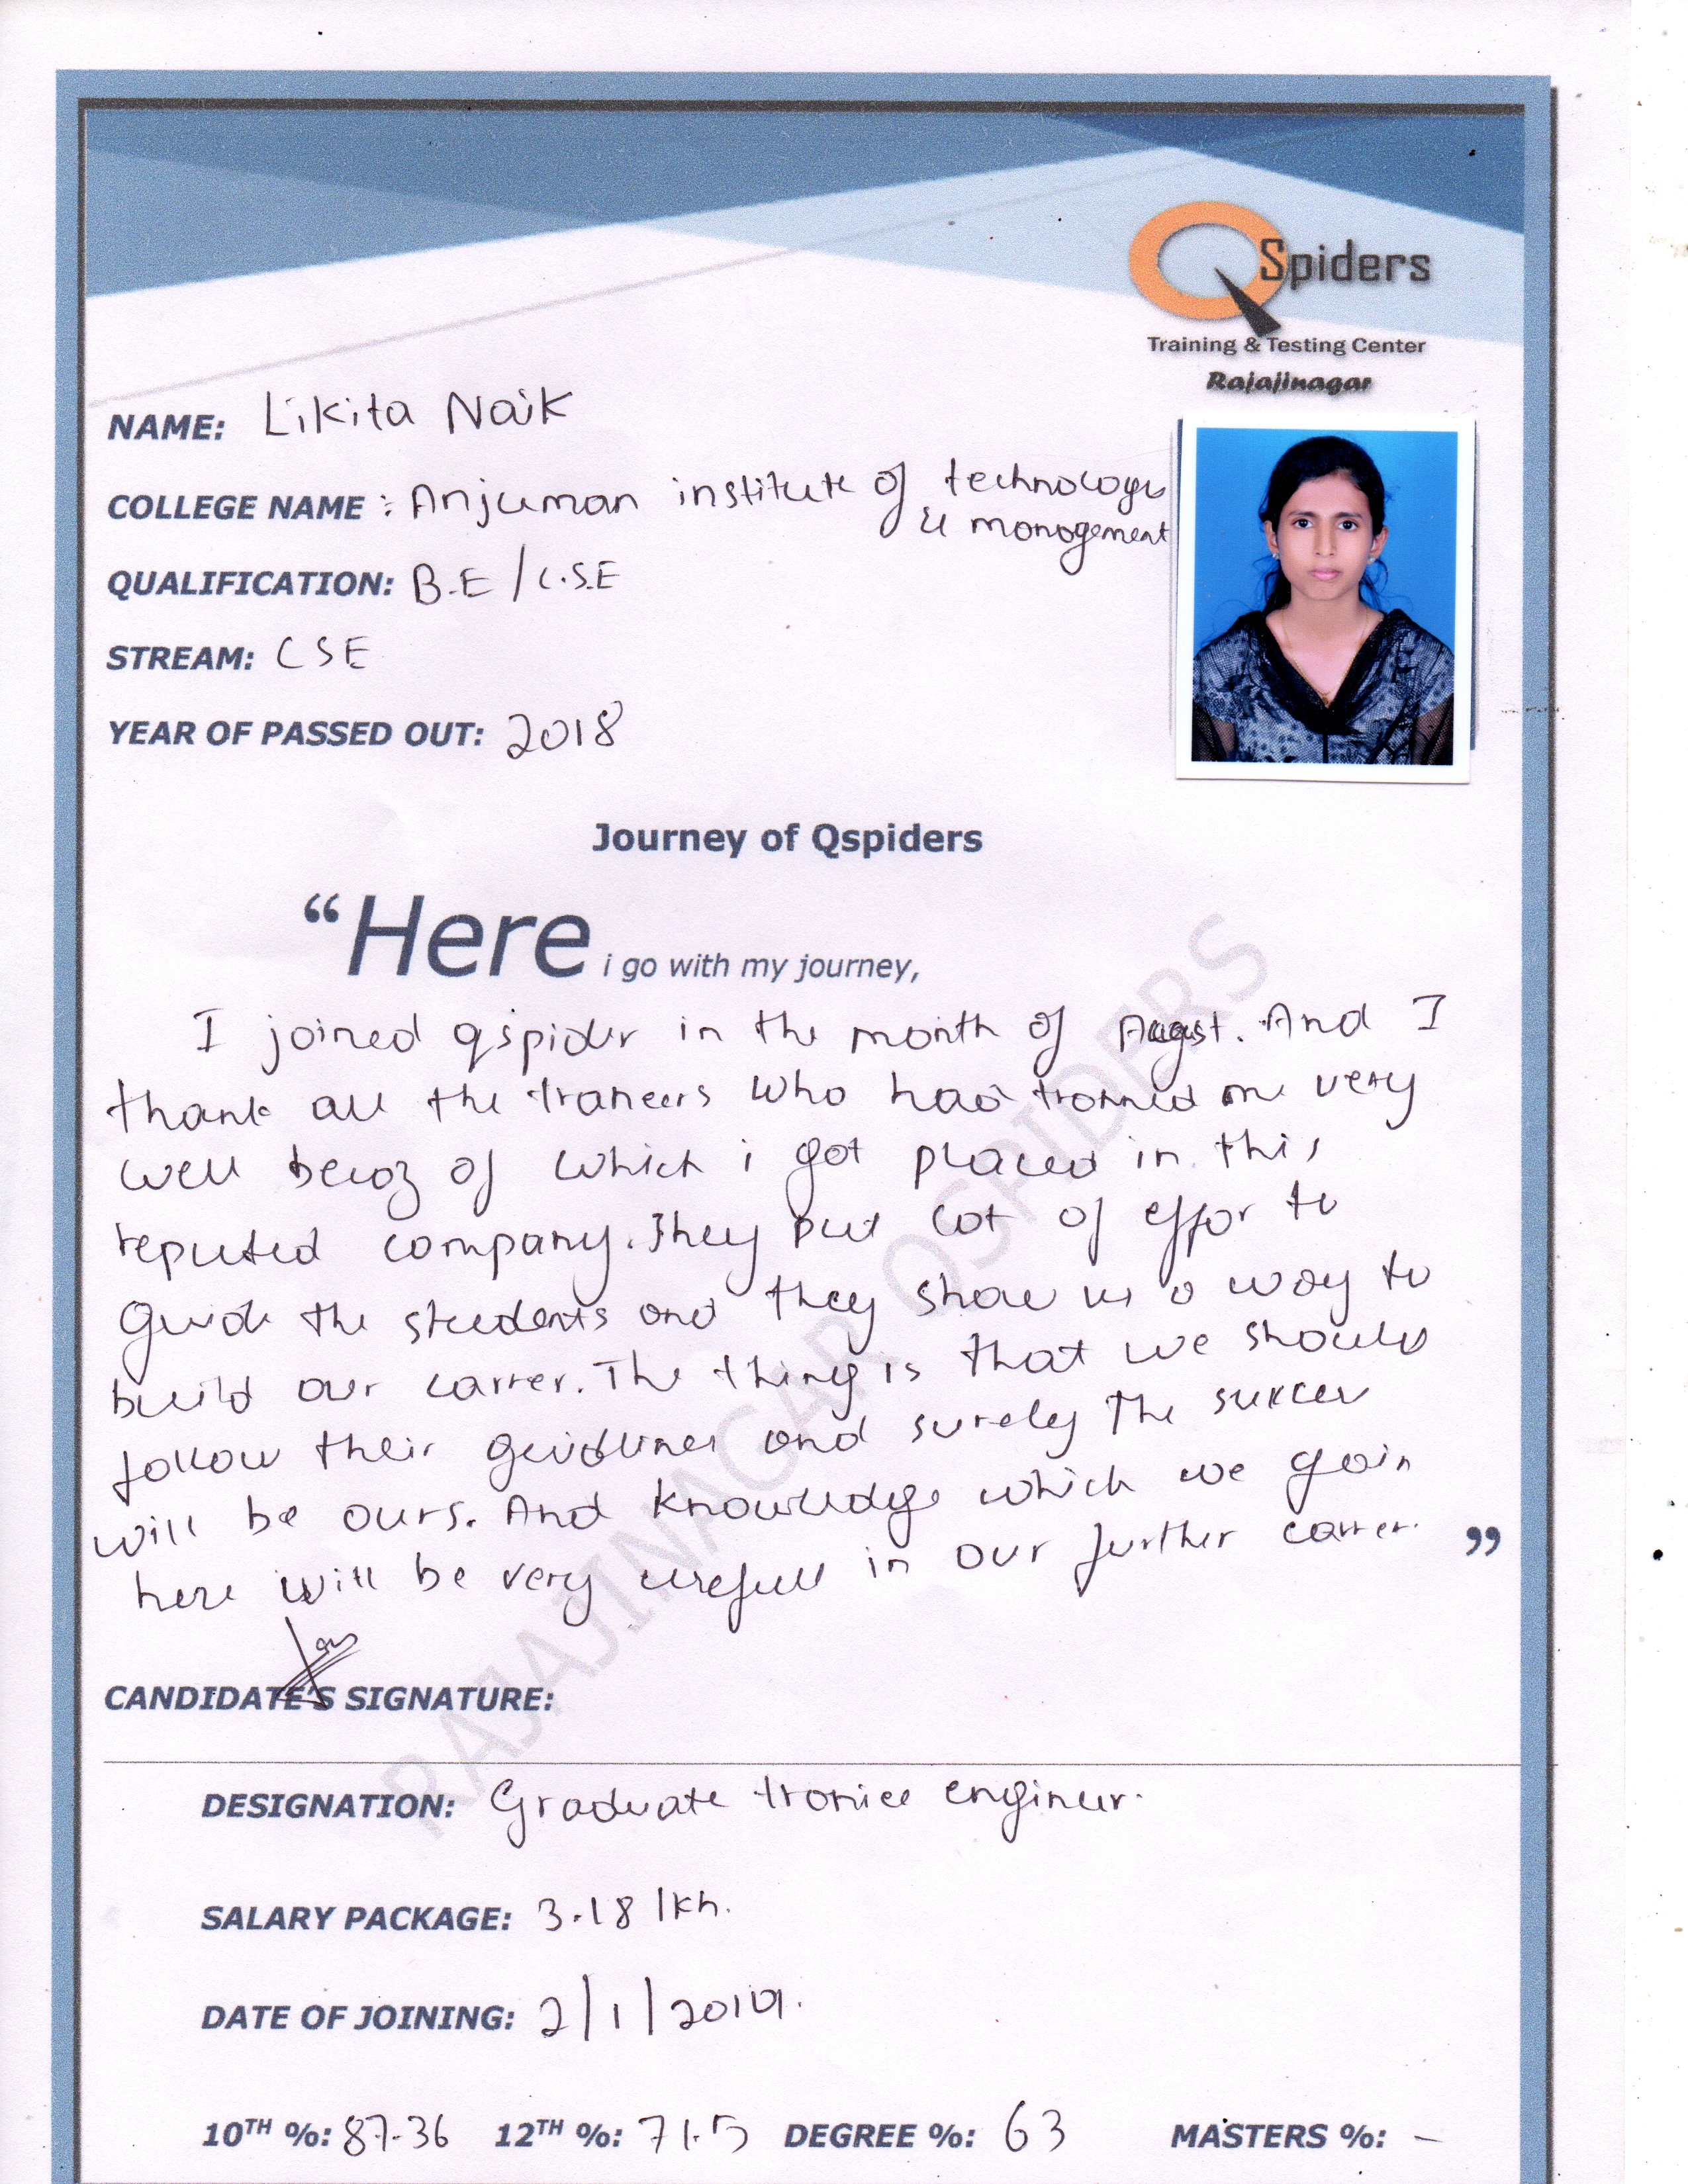 QSpiders
Training & Testing Center
Rajajinagar
NAME: Likita Naik
COLLEGE NAME : Anjuman institute of technology
& management
QUALIFICATION: B.E / C.S.E
STREAM: CSE
YEAR OF PASSED OUT: 2018
Journey of Qspiders
“Here i go with my journey,
I joined qspider in the month of August. And I
thank all the traneers who had trained me very
well becoz of which i got placed in this
reputed company. They put lot of effor to
guide the students and they show us a way to
build our carrer. The thing is that we should
follow their guidlines and surely the succes
will be ours. And knowledge which we gain
here will be very usefull in our further carrer. ”
CANDIDATE'S SIGNATURE:
DESIGNATION: Graduate trainee engineer.
SALARY PACKAGE: 3.18 lkh.
DATE OF JOINING: 2/1/2019.
10TH %: 87.36 12TH %: 71.5 DEGREE %: 63 MASTERS %: -
RAJAJINAGAR QSPIDERS